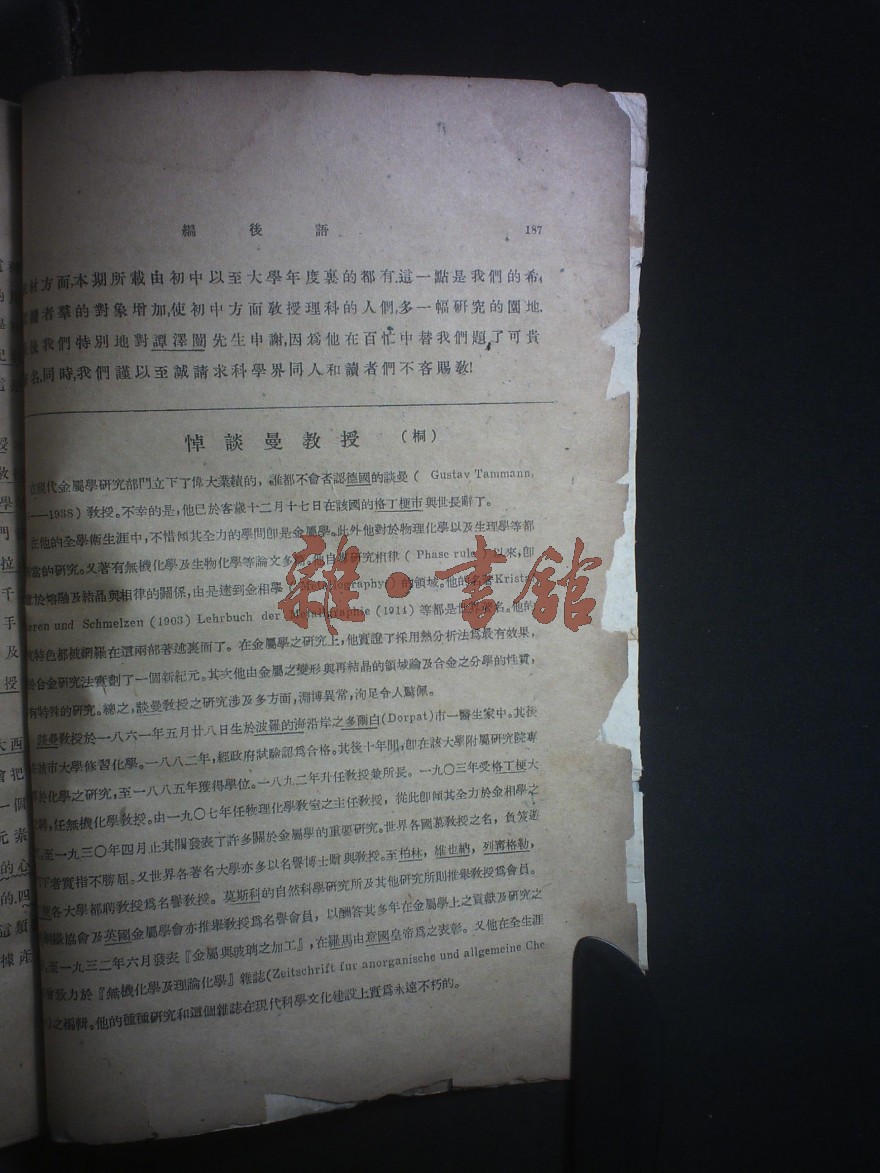 編後語 187
材方面,本期所載由初中以至大學年度裏的都有,這一點是我們的希,
讀者羣的對象增加,使初中方面教授理科的人們,多一幅研究的園地.
後我們特別地對譚澤闓先生申謝,因爲他在百忙中替我們題了可貴
名.同時,我們謹以至誠請求科學界同人和讀者們不吝賜敎!
悼談曼教授 (桐)
現代金屬學研究部門立下了偉大業績的,誰都不會否認德國的談曼( Gustav Tammann,
—1938)教授。不幸的是,他已於客歲十二月十七日在該國的格丁梗市與世長辭了。
在他的全學術生涯中,不惜傾其全力的學問卽是金屬學。此外他對於物理化學以及生理學等都
當的研究。又著有無機化學及生物化學等論文多 他自專研究相律( Phase rule)以來,卽
於熔融及結晶與相律的關係,由是達到金相學(Metallography)的領域。他的名著Krista
eren und Schmelzen (1903) Lehrbuch der Metallgraphie (1914) 等都是世界 名。他的
特色都被網羅在這兩部著述裏而了。在金屬學之研究上,他實證了採用熱分析法爲最有效果,
合金研究法實劃了一個新紀元。其次他由金屬之變形與再結晶的領域論及合金之分學的性質,
有特殊的研究。總之,談曼敎授之研究涉及多方面,淵博異常,洵足令人驚佩。
談曼敎授於一八六一年五月廿八日生於波羅的海沿岸之多爾白(Dorpat)市一醫生家中。其後
該市大學修習化學。一八八二年,經政府試驗認爲合格。其後十年間,卽在該大學附屬研究院專
於化學之研究,至一八八五年獲得學位。一八九二年升任敎授兼所長。一九〇三年受格丁梗大
聘,任無機化學敎授。由一九〇七年任物理化學敎室之主任敎授,從此卽傾其全力於金相學之
至一九三〇年四月止其間發表了許多關於金屬學的重要研究。世界各國慕敎授之名,負笈遊
者實指不勝屈。又世界各著名大學亦多以名譽博士贈與敎授。至柏林,維也納,列寧格勒,
各大學都聘敎授爲名譽敎授。莫斯科的自然科學研究所及其他研究所則推舉敎授爲會員。
鐵協會及英國金屬學會亦推舉敎授爲名譽會員,以酬答其多年在金屬學上之貢獻及研究之
至一九三二年六月發表『金屬與玻璃之加工』,在羅馬由意國皇帝爲之表彰。又他在全生涯
會致力於『無機化學及理論化學』雜誌(Zeitschrift fur anorganische und allgemeine Che
之編輯。他的種種研究和這個雜誌在現代科學文化建設上實爲永遠不朽的。
雜·書館